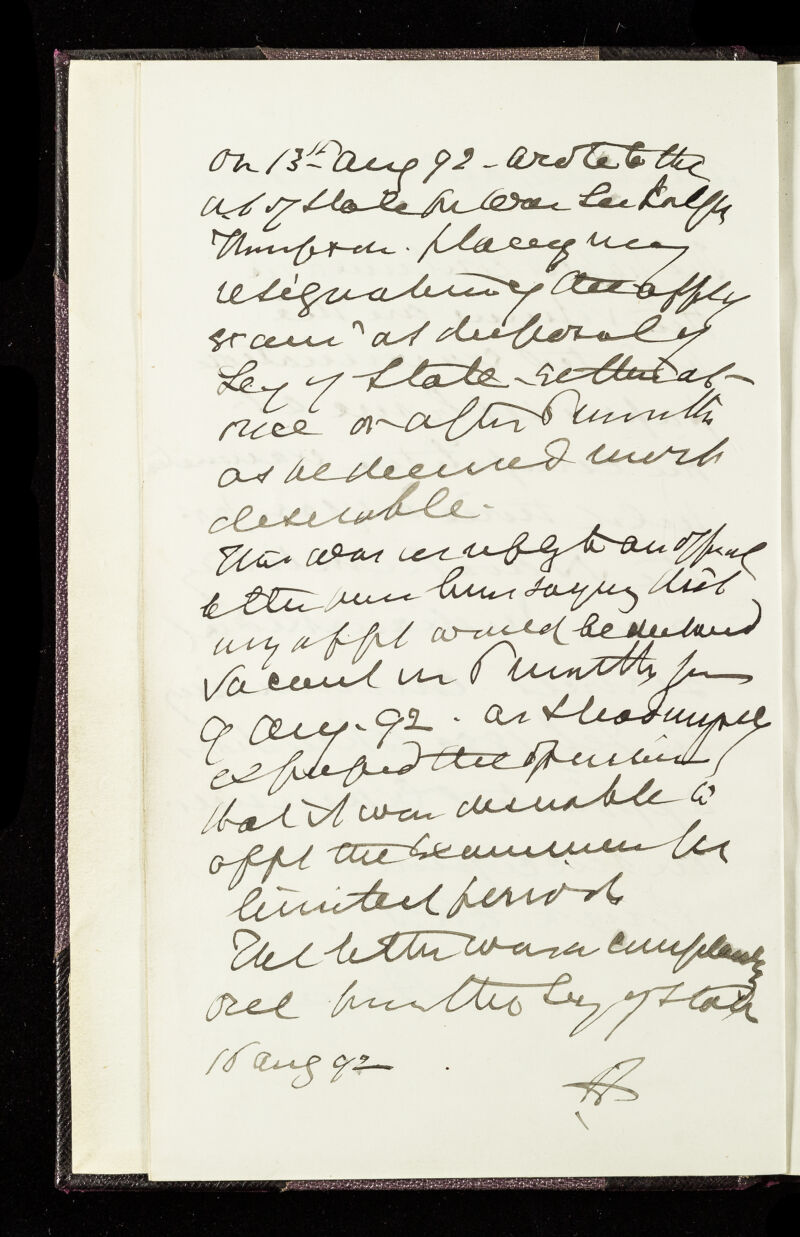 On 13th Aug 92 - wrote to the
of State for War Sir Ralph
Thompson. placing my
resignation of the appt
exam^r at disposal of
Secy of State - either at
once or after 6 months
as be deemed most
desirable.
This was in reply to an official
letter from him saying that
my appt would be declared
vacant in 6 months from
9 Aug. 92. as I had myself
expressed the opinion
that it was desirable to
appt the Examiners for
limited periods
The letter was a complimentary
one from the Secy of State
16 Aug 92